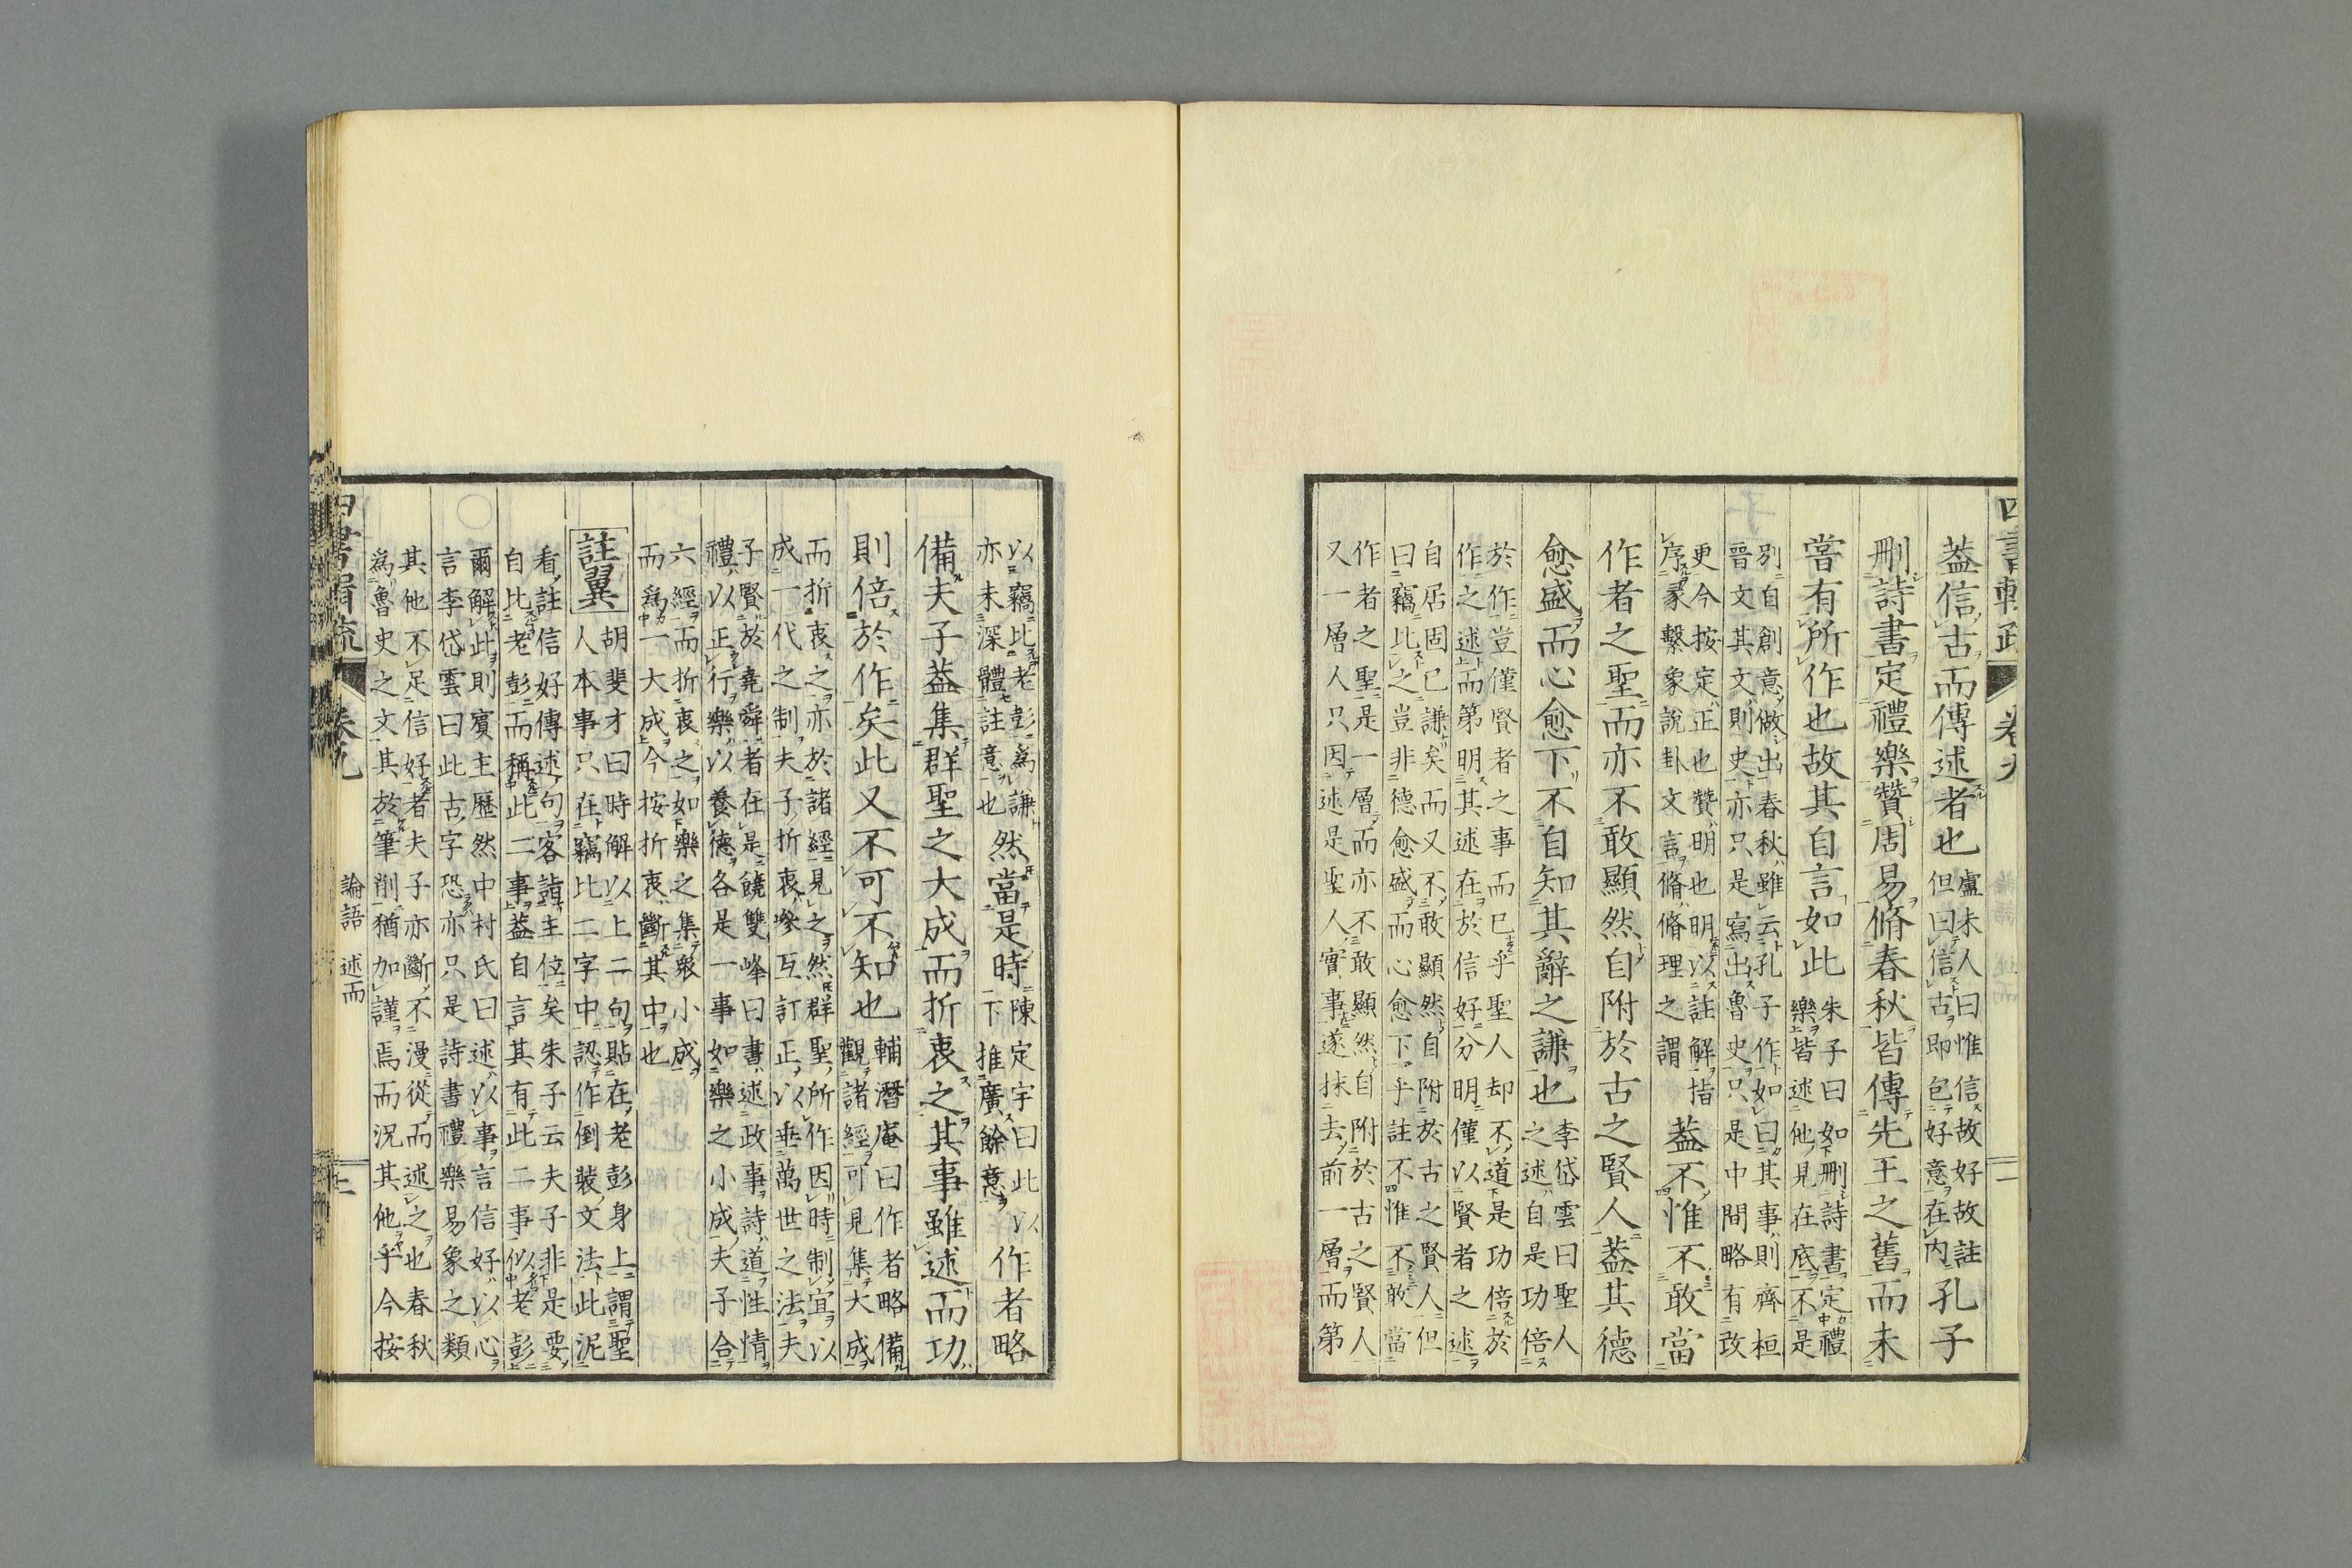 四書輯疏 卷九 二
蓋信古而傳述者也盧未人曰惟信故好故註
但曰信古即包好意在内孔子
刪詩書定禮樂贊周易脩春秋皆傳先王之舊而未
嘗有所作也故其自言如此朱子曰如刪詩書定禮
樂皆述他見在底不是
別自創意做出春秋雖云孔子作如曰其事則齊桓
晉文其文則史亦只是寫出魯史只是中間略有改
更今按定正也贊明也明以註解指
序彖繫象說卦文言脩脩理之謂蓋不惟不敢當
作者之聖而亦不敢顯然自附於古之賢人蓋其德
愈盛而心愈下不自知其辭之謙也李岱雲曰聖人
之述自是功倍
於作豈僅賢者之事而已乎聖人却不道是功倍於
作之述而第明其述在於信好分明僅以賢者之述
自居固已謙矣而又不敢顯然自附於古之賢人但
曰竊比之豈非德愈盛而心愈下乎註不惟不敢當
作者之聖是一層而亦不敢顯然自附於古之賢人
又一層人只因述是聖人實事遂抹去前一層而第
以竊比老彭爲謙
亦未深體註意也然當是時陳定宇曰此以
下推廣餘意作者略
備夫子蓋集群聖之大成而折衷之其事雖述而功
則倍於作矣此又不可不知也輔潛庵曰作者略備
觀諸經可見集大成
而折衷之亦於諸經見之然群聖所作因時制宜以
成一代之制夫子折衷參互訂正以垂萬世之法夫
子賢於堯舜者在是饒雙峰曰書述政事詩道性情
禮以正行樂以養德各是一事如樂之小成夫子合
六經而折衷之如樂之集衆小成
而爲一大成今按折衷斷其中也
註翼胡斐才曰時解以上二句貼在老彭身上謂聖
人本事只在竊比二字中認作倒裝文法此泥
看註信好傳述句客請主位矣朱子云夫子非是要
自比老彭而稱此二事蓋自言其有此二事似老彭
爾解此則賓主歷然中村氏曰述以事言信好以心
言李岱雲曰此古字恐亦只是詩書禮樂易象之類
其他不足信好者夫子亦斷不漫從而述之也春秋
爲魯史之文其於筆削猶加謹焉而況其他乎今按
四書輯疏 卷九 論語 述而 三